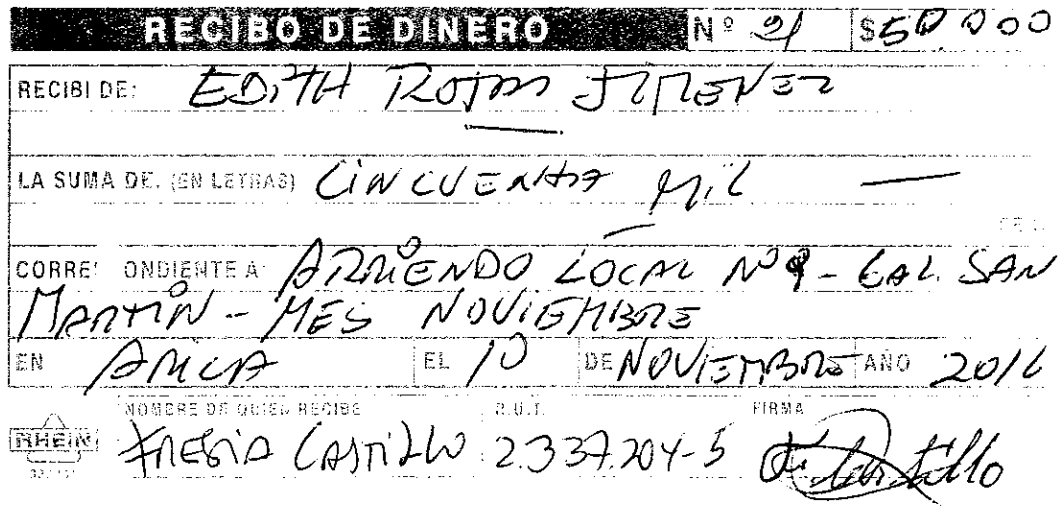 RECIBO DE DINERO Nº 21 $50000
RECIBI DE: EDITH ROJAS JIMENEZ
LA SUMA DE. (EN LETRAS) CINCUENTA MIL
CORRE ONDIENTE A: ARRIENDO LOCAL Nº 9 - GAL. SAN
MARTIN - MES NOVIEMBRE
EN ARICA EL 10 DE NOVIEMBRE AÑO 2016
NOMBRE DE QUIEN RECIBE R.U.T. FIRMA
RHEIN FRESIA CASTILLO 2.337.204-5